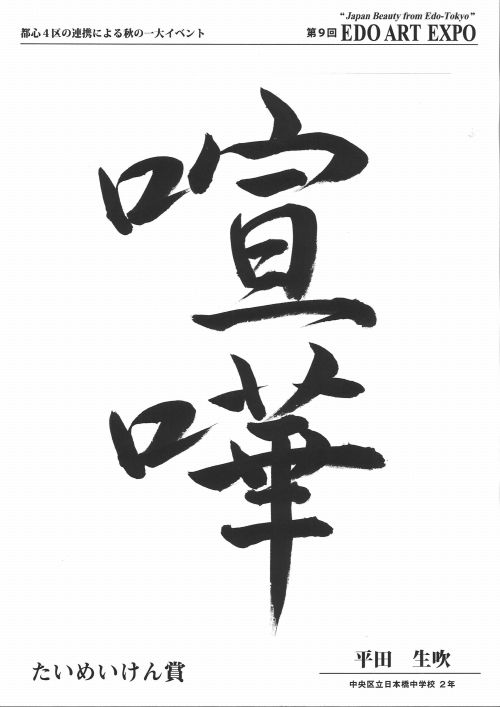 都心4区の連携による秋の一大イベント
"Japan Beauty from Edo-Tokyo"
第9回 EDO ART EXPO
喧
嘩
たいめいけん賞
平田 生吹
中央区立日本橋中学校 2年